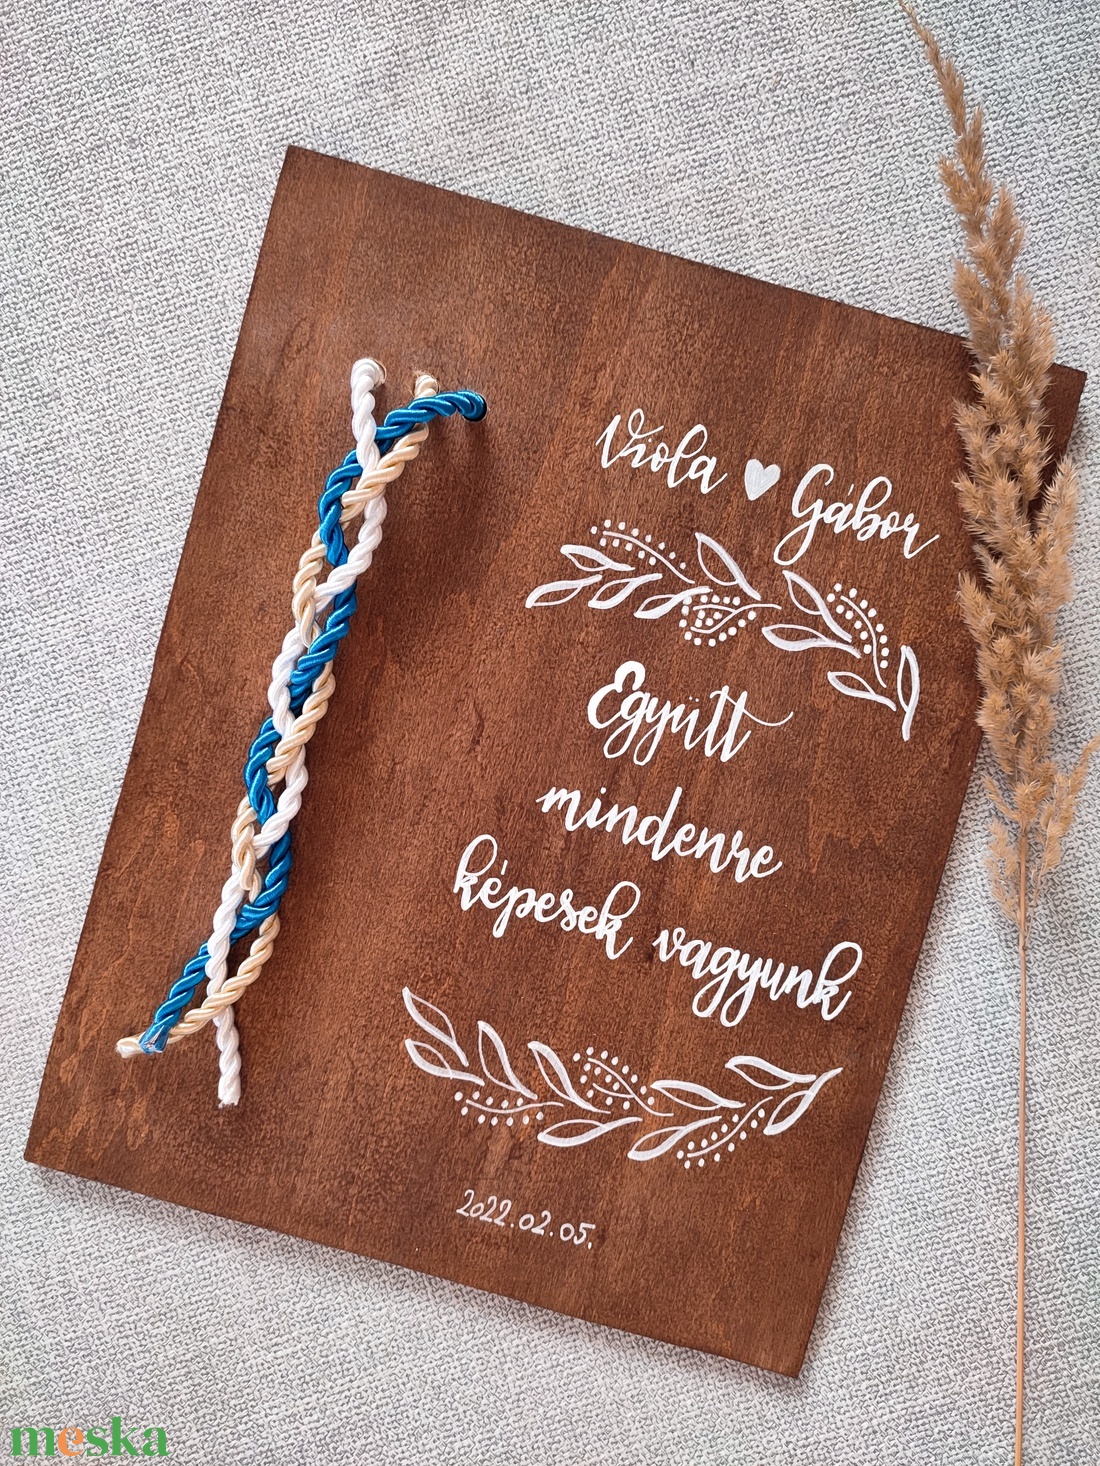 Viola ♥ Gábor
Együtt
mindenre
képesek vagyunk
2022.02.05.
meska